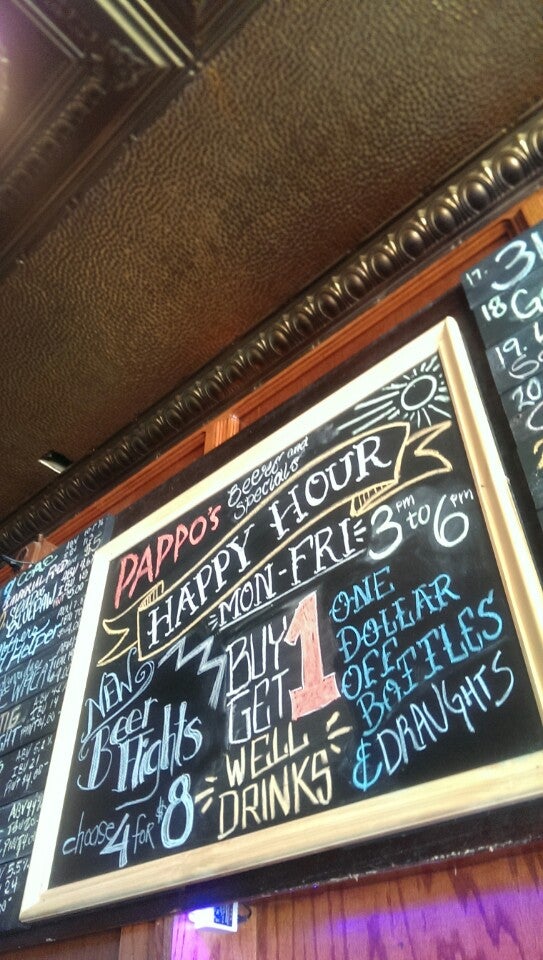 PAPPO'S
Beers and
Specials
HAPPY HOUR
MON-FRI 3pm to 6pm
NEW
Beer
Flights
choose 4 for $8
BUY 1
GET 1
WELL
DRINKS
ONE
DOLLAR
OFF
BATTLES
& DRAUGHTS
17. 31
18 G
19.
20